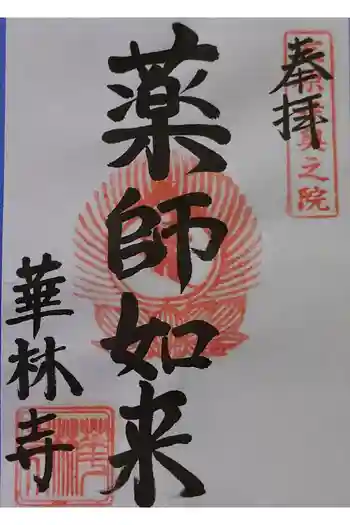 奉拝
薬師如来
華林寺